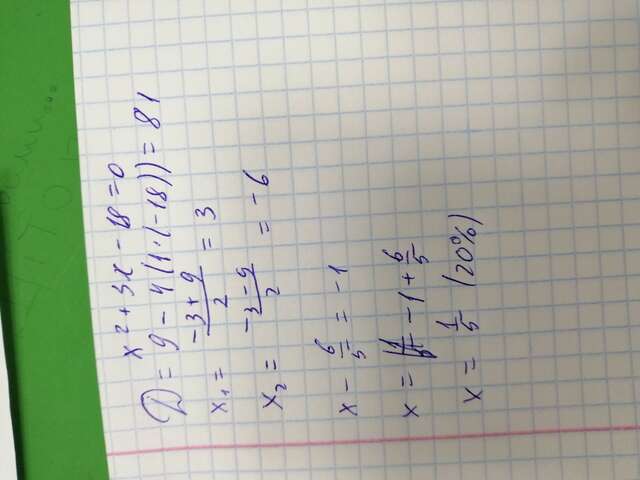 x² + 3x - 18 = 0
D = 9 - 4(1·(-18)) = 81
x₁ = \frac{-3+9}{2} = 3
x₂ = \frac{-3-9}{2} = -6
x - \frac{6}{5} = -1
x = -1 + \frac{6}{5}
x = \frac{1}{5} (20%)